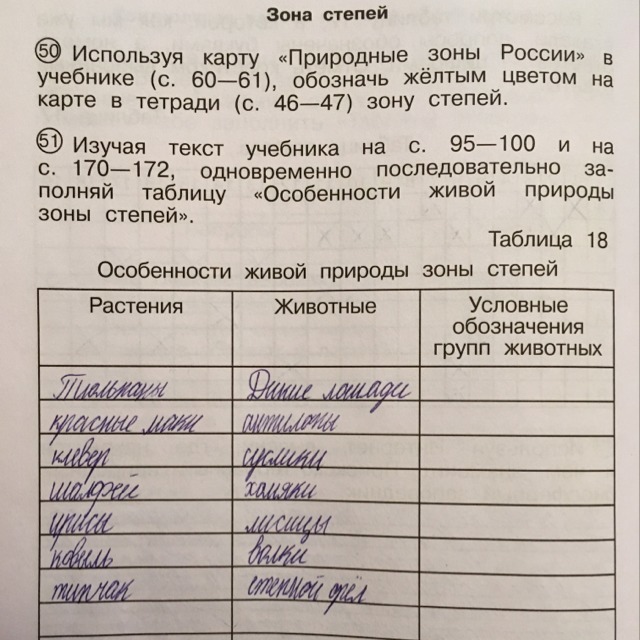 Зона степей
50 Используя карту «Природные зоны России» в
учебнике (с. 60—61), обозначь жёлтым цветом на
карте в тетради (с. 46—47) зону степей.
51 Изучая текст учебника на с. 95—100 и на
с. 170—172, одновременно последовательно за-
полняй таблицу «Особенности живой природы
зоны степей».
Таблица 18
Особенности живой природы зоны степей
Растения Животные Условные
обозначения
групп животных
Тюльпаны Дикие лошади
красные маки антилопы
клевер суслики
шалфей хомяки
ирисы лисицы
ковыль волки
типчак степной орёл